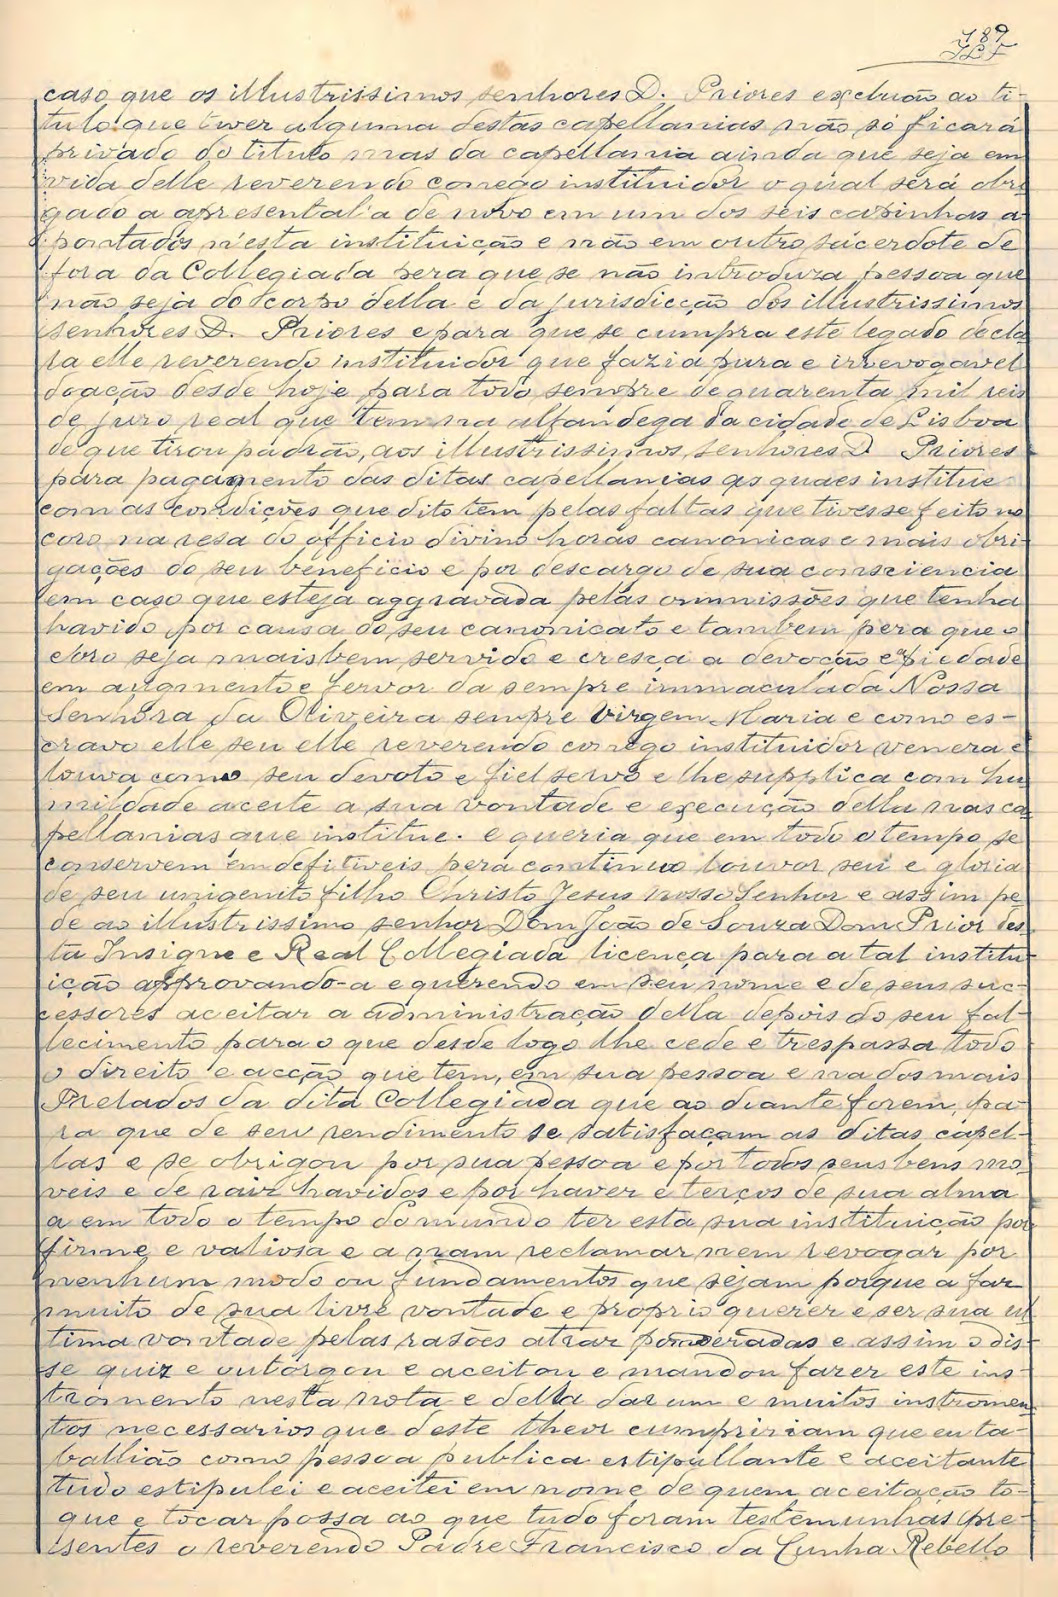 189
caso que os illustrissimos senhores D. Priores excluão ao ti-
tulo que tiver alguma destas capellanias não só ficará
privado do titulo mas da capellania ainda que seja em
vida delle reverendo conego instituidor o qual será obri-
gado a apresental-a de novo em um dos seis capinhas a-
pontados n'esta instituição e não em outro sacerdote de
fora da Collegiada pera que se não introduza pessoa que
não seja do corpo della e da jurisdicção dos illustrissimos
senhores D. Priores e para que se cumpra este legado decla
ra elle reverendo instituidor que fazia pura e irrevogavel
doação desde hoje para todo sempre de quarenta mil reis
de juro real que tem na alfandega da cidade de Lisboa
de que tirou padrão, aos illustrissimos senhores D. Priores
para pagamento das ditas capellanias as quaes institue
com as condições que dito tem pelas faltas que tivesse feito no
coro na resa do officio divino horas canonicas e mais obri-
gações do seu beneficio e por descargo de sua consciencia
em caso que esteja aggravada pelas ommissões que tenha
havido por causa do seu canonicato e tambem pera que o
coro seja mais bem servido e cresça a devoção e piedade
em augmento e fervor da sempre immaculada Nossa
Senhora da Oliveira sempre Virgem Maria e como es-
cravo elle seu elle reverendo conego instituidor venera e
louva como seu devoto e fiel servo e lhe supplica com hu
mildade aceite a sua vontade e execução della nas ca
pellanias que institue. e queria que em todo o tempo se
conservem indefitiveis pera continuo louvor seu e gloria
de seu unigenito filho Christo Jesus nosso Senhor e assim pe
de ao illustrissimo senhor Dom João de Souza Dom Prior des
ta Insigne e Real Collegiada licença para a tal institu-
ição approvando-a e querendo em seu nome e de seus suc-
cessores aceitar a administração della depois do seu fal-
lecimento para o que desde logo lhe cede e trespassa todo
o direito e acção que tem, em sua pessoa e na dos mais
Prelados da dita Collegiada que ao diante forem, pa-
ra que de seu rendimento se satisfaçam as ditas capel-
las e se obrigou por sua pessoa e por todos seus bens mo
veis e de raiz havidos e por haver e terços de sua alma
a em todo o tempo do mundo ter esta sua instituição por
firme e valiosa e a nam reclamar nem revogar por
nenhum modo ou fundamentos que sejam porque a faz
muito de sua livre vontade e proprio querer e ser sua ul
tima vontade pelas rasões atraz ponderadas e assim o dis-
se quiz e outorgou e aceitou e mandou fazer este ins-
tromento nesta nota e della dar um e muitos instromen
tos necessarios que deste theor cumpririam que eu ta-
ballião como pessoa publica estipullante e aceitante
tudo estipulei e aceitei em nome de quem aceitação to-
que e tocar possa ao que tudo foram testemunhas pre-
sentes o reverendo Padre Francisco da Cunha Rebello